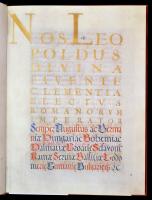 NOS LEO
POLDUS
DIVINA
FAVENTE
CLEMENTIA
ELECTUS
ROMANORUM
IMPERATOR
Semper Augustus ac Germa
niæ Hungariæ Bohemiæ
Dalmatiæ Croatiæ Sclavoniæ
Ramæ Serviæ Galliciæ Lodo
meriæ Cumaniæ Bulgariæq &c